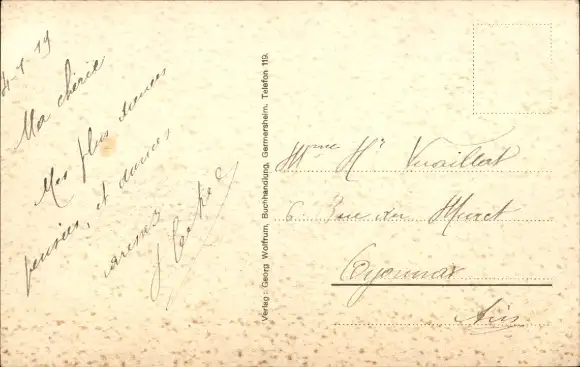 4-1-19
Ma chérie
Mes plus douces
pensées, et douces
caresses
Verlag: Georg Wolfrum, Buchhandlung, Germersheim. Telefon 119.
Mme Hri
6 Rue du Muret
Oyonnax
Ain